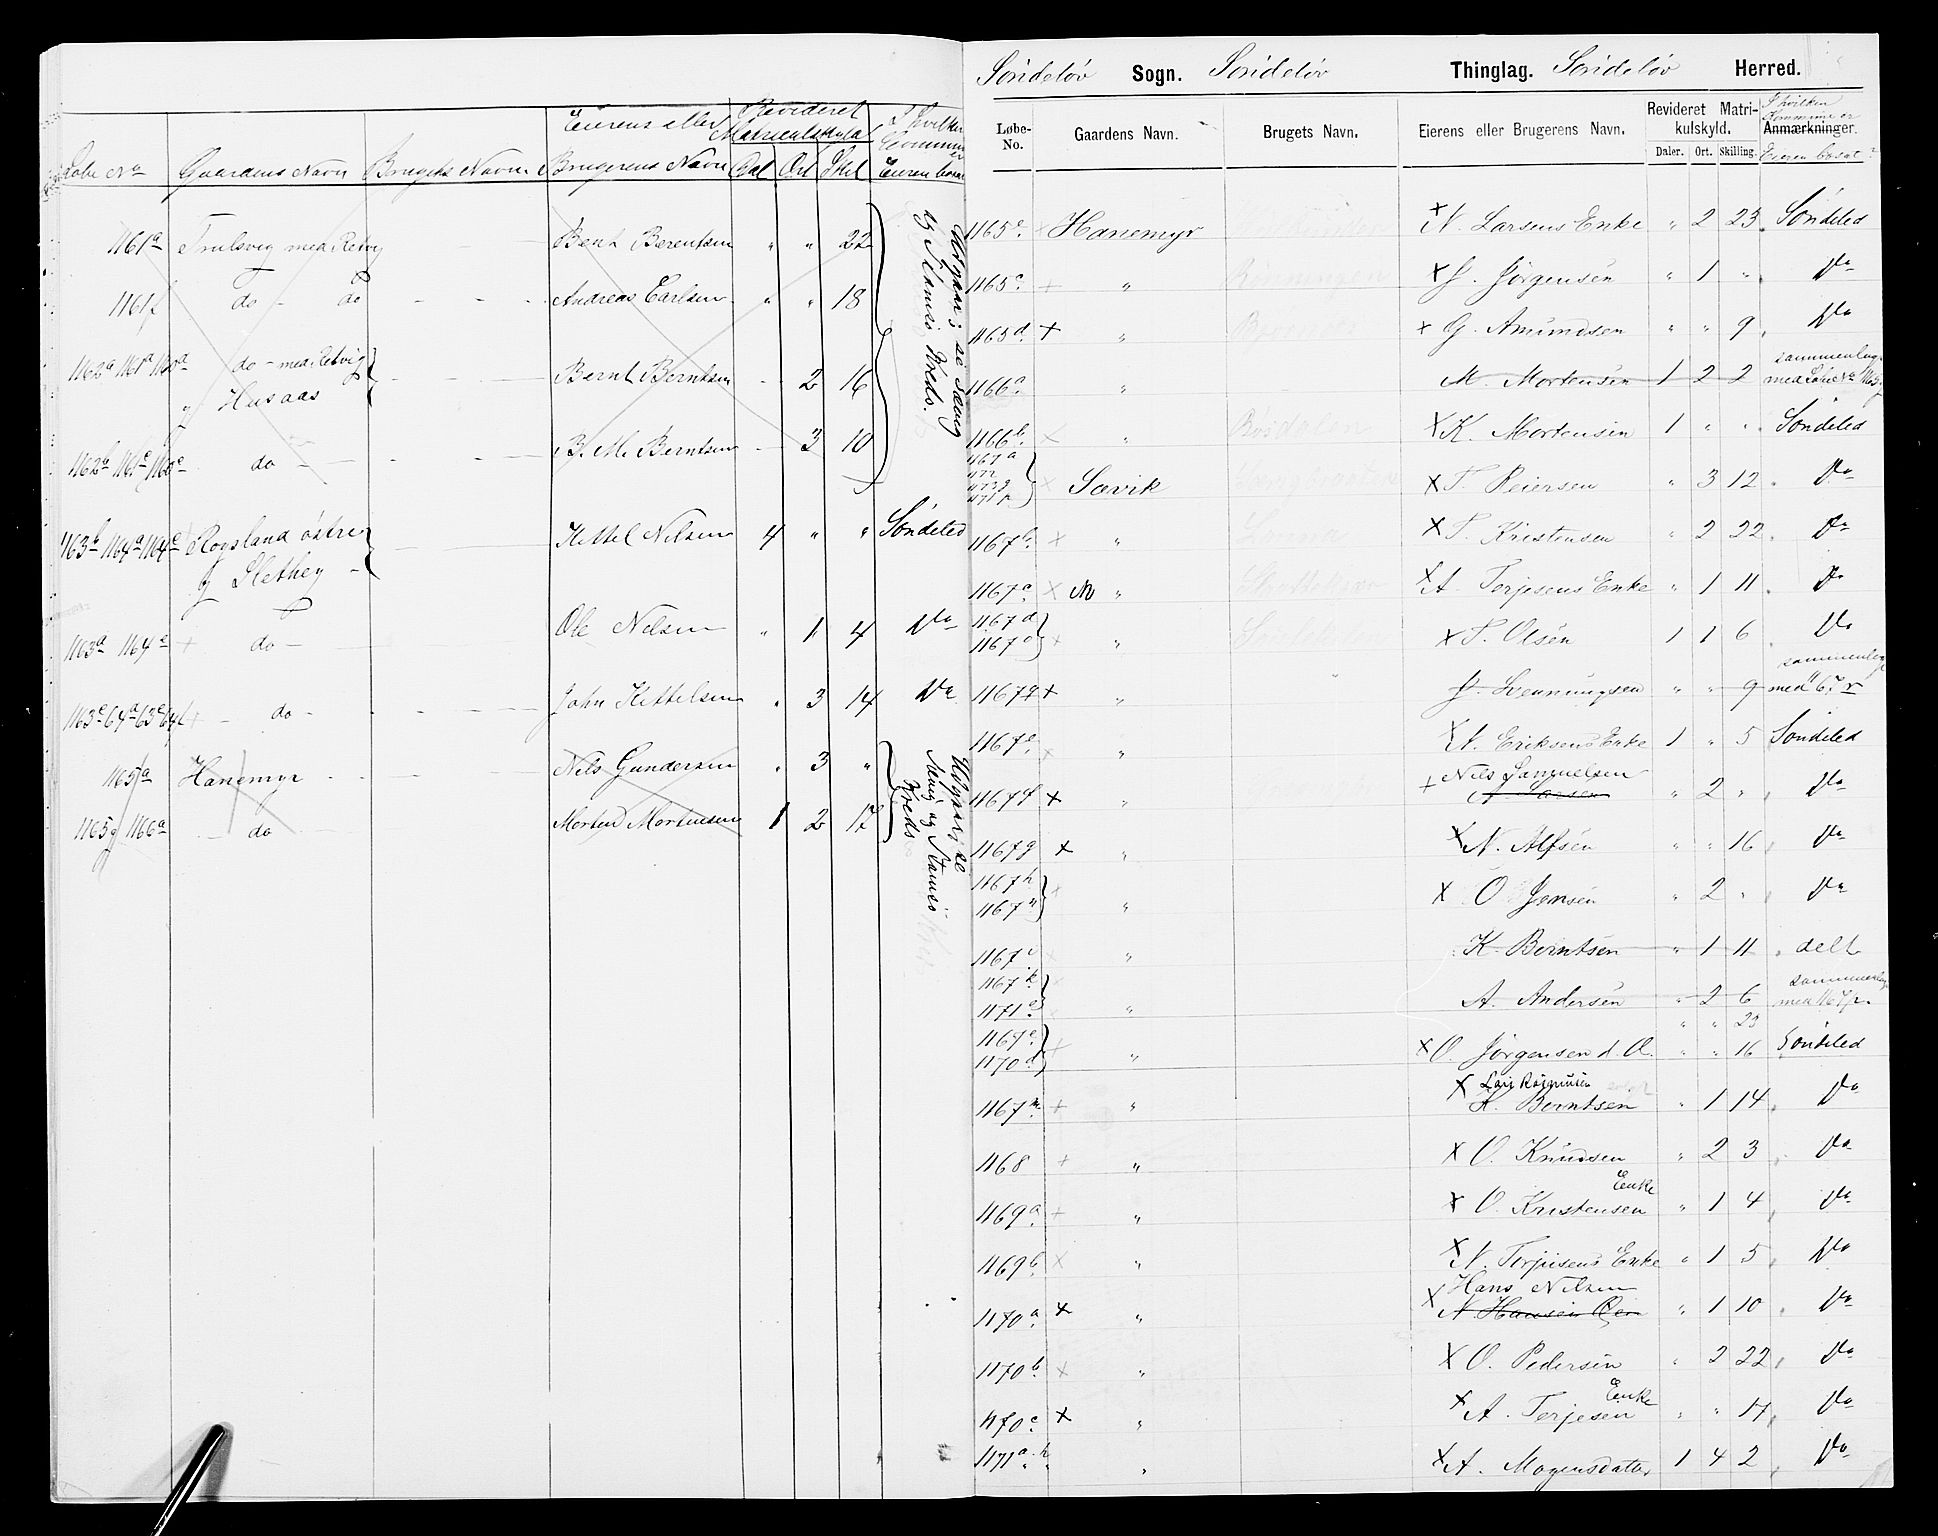 Eierens eller Revideret I hvilken
Matriculskyld Commune er
Løbe No Gaardens Navn Brugets Navn Brugerens Navn Dal Ort Skil Eieren bosat
1161a Trulsvig med Retvig Bent Berentsen " " 22
1161f do - do - - - Andreas Carlsen " " 18
1162a 1161a do - med Retvig
og Husaas - - - Bernt Berntsen - 2 16
1162b 1161c do - - - - B. M. Berntsen - 3 10
Udgaar; se Sævig
og Stamsø Kreds.
1163b 1164a 1164c Røysland østre
og Slethey - Kittel Nilsen 4 " " Søndeled
1163a 1164 do - Ole Nilsen " 1 4 Do
- do - John Kittelsen " 3 14 Do
1165a Hanemyr - - - Nils Gundersen " 3 "
1165g 1166a - do - Morten Mortensen 1 2 17
Udgaar; se
Sævig og Stamsø
Kreds
Søndeløv Sogn. Søndeløv Thinglag. Søndeløv Herred.
Løbe-No. Gaardens Navn. Brugets Navn. Eierens eller Brugerens Navn. Revideret Matrikulskyld. Daler. Ort. Skilling. Anmærkninger.
I hvilken Kommune er Eieren bosat?
1165 Hanemyr N. Larsens Enke " 2 23 Søndeled
1165c " Rønningen J. Jørgensen " 1 " Do
1165d + " G. Amundsen " " 9 Do
1166a " M. Mortensen 1 2 2 sammenlagt
med Løbe No 1165g
1166b " Røsdalen K. Mortensen 1 " " Søndeled
1167a
Sævik T. Reiersen " 3 12 Do
1167b " T. Kristensen " 2 22 Do
1167c " A. Terjesens Enke " 1 11 Do
1167d
1167o " T. Olsen 1 1 6 Do
1167q + " J. Svenningsen " " 9 sammenlagt
med 67r
1167e " N. Eriksens Enke 1 " 5 Søndeled
Nils Samuelsen
1167f + " A. Larsen " 2 " Do
1167g + " N. Alfsen " " 16 Do
1167h
1167n " O. Jensen " 2 " Do
1167i " K. Berntsen " 1 11 delt
1167k
1171e " A. Andersen " 2 6 sammenlagt
med 1167p.
" " 23
1167l
1170d " O. Jørgensen d. Æ. " " 16 Søndeled
Lars Rasmusen
1167m + " K. Berntsen " 1 14 Do
1168 + " O. Knudsen " 2 3 Do
1169a + " O. Kristensen Enke " 1 4 Do
1169b × " N. Terjesens Enke " 1 5 Do
Hans Nilsen
1170a × " N. Hansen " 1 10 Do
1170b × " O. Pedersen " 2 22 Do
1170c × " A. Terjesen Enke " " 17 Do
1171a.h " A. Mogensdatter 1 4 2 Do